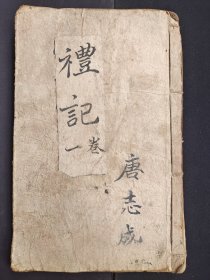 禮記
卷一
唐志成